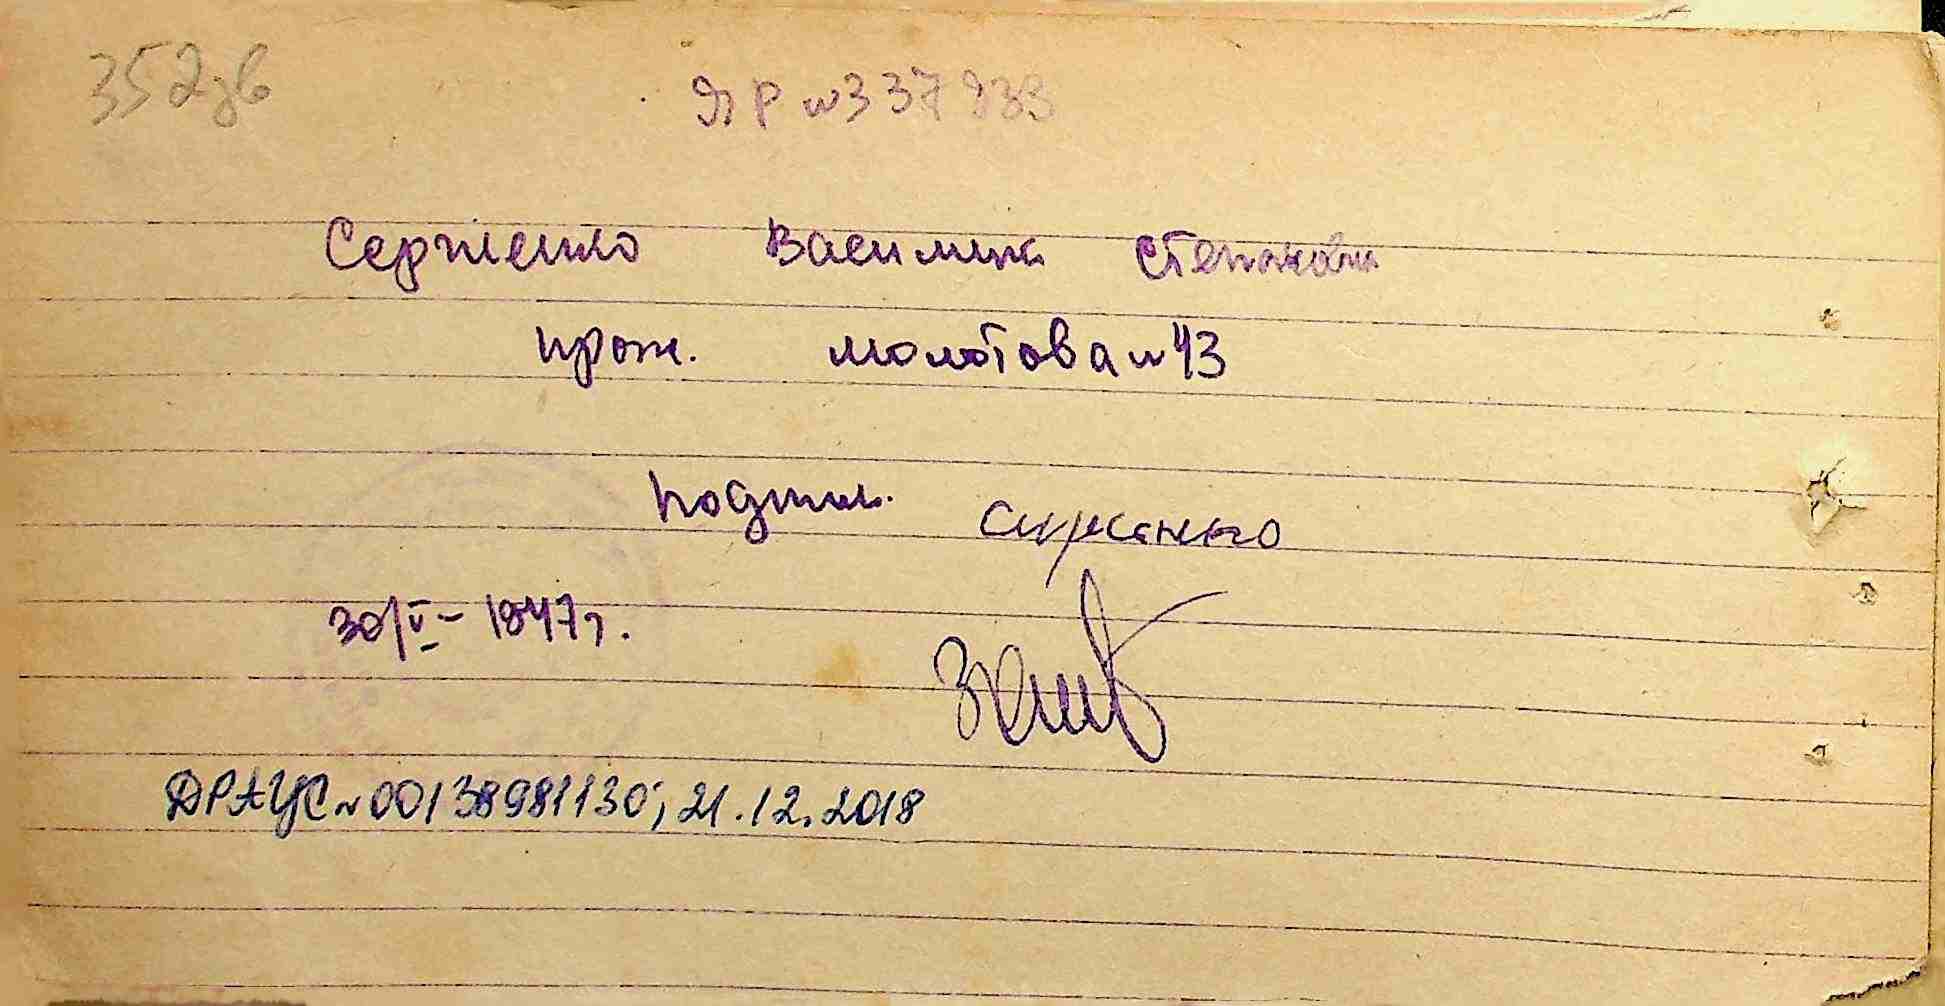 352зв
ЯР №337939
Сергиенко Василия Степанови
прож. Молотова №43
подпись. Сиргиенко
30/V - 1947 г.
ДРАЦС №00138981130; 21.12.2018